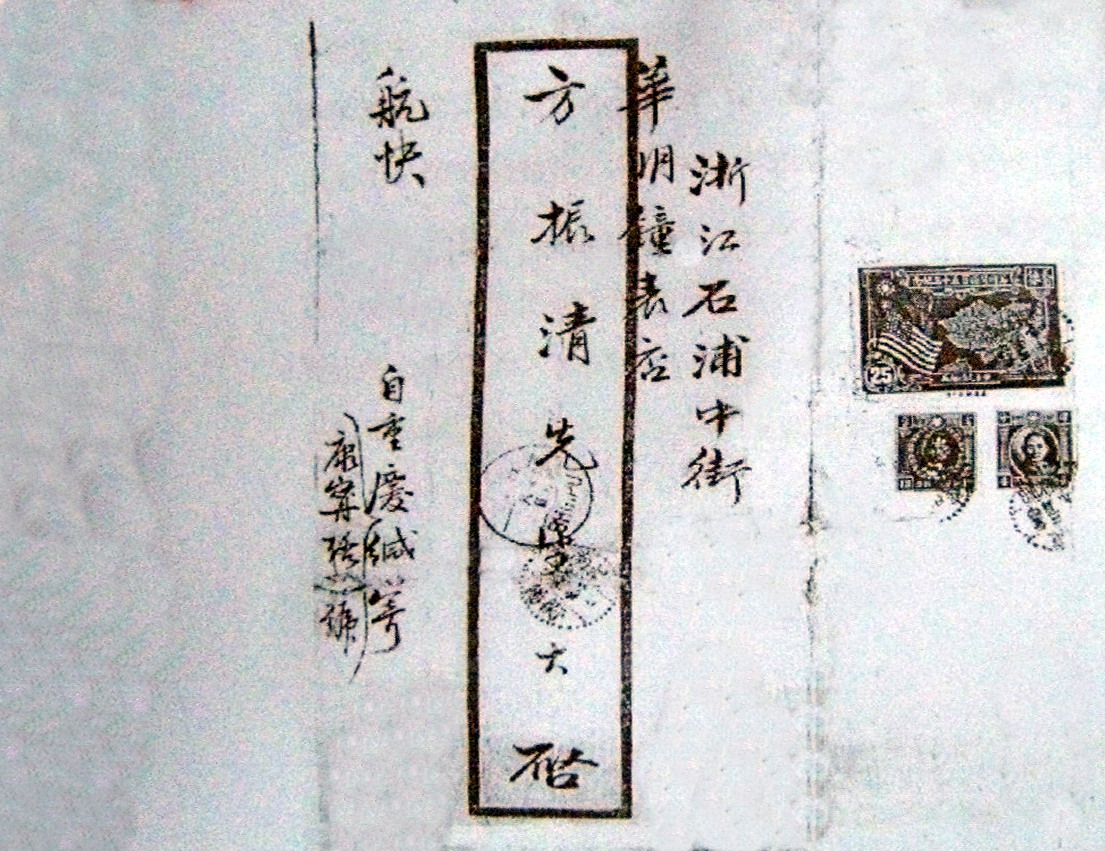 浙江石浦中街
華明鐘表店
方振清先生大啓
航快
自重慶緘寄
康寧路號
25